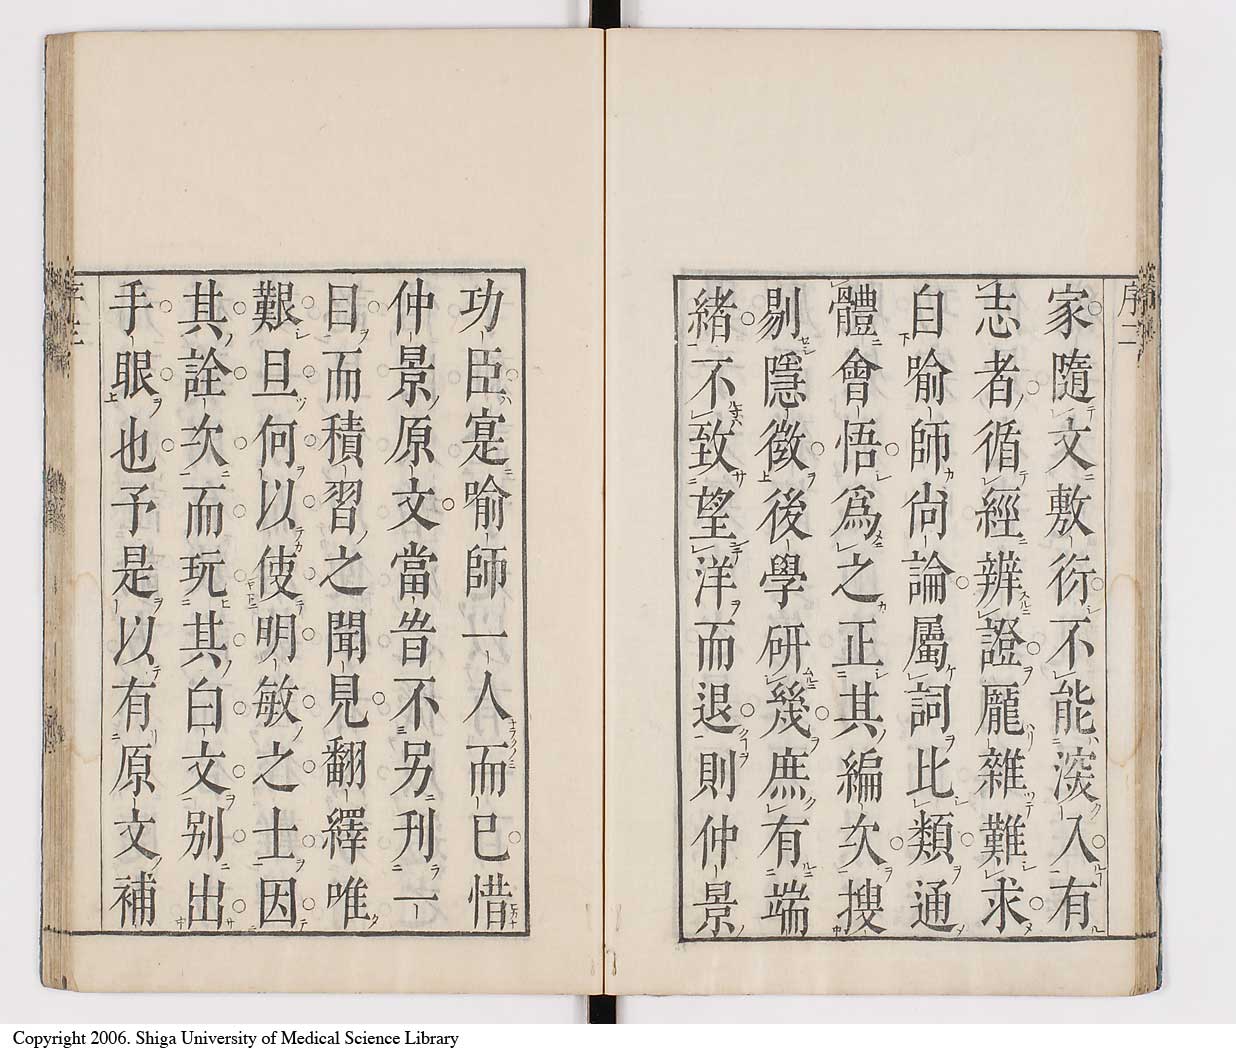 序二
家隨文敷衍不能深入有
志者循經辨證厖雜難求
自喻師尙論屬詞比類通
體會悟爲之正其編次搜
剔隱微後學硏幾庶有端
緖不致望洋而退則仲景
功臣寔喻師一人而已惜
仲景原文當昔不另刋一
目而積習之聞見翻繹唯
艱且何以使明敏之士因
其詮次而玩其白文别出
手眼也予是以有原文補
序三
Copyright 2006. Shiga University of Medical Science Library